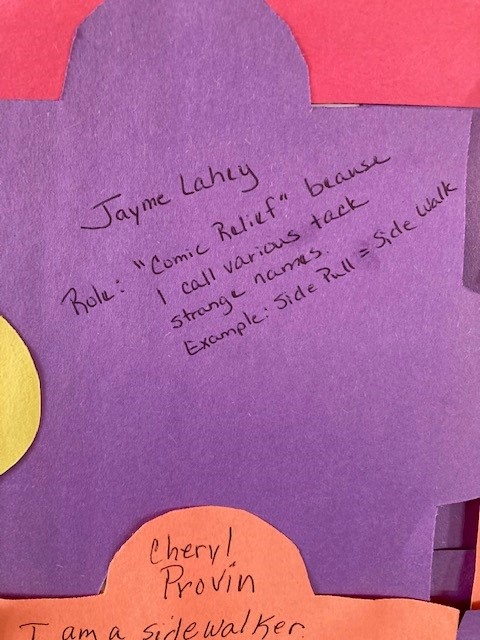 Jayme Lahey
Role: "Comic Relief" because
I call various tack
strange names.
Example: Side Pull = Side Walk
Cheryl
Provin
I am a sidewalker.